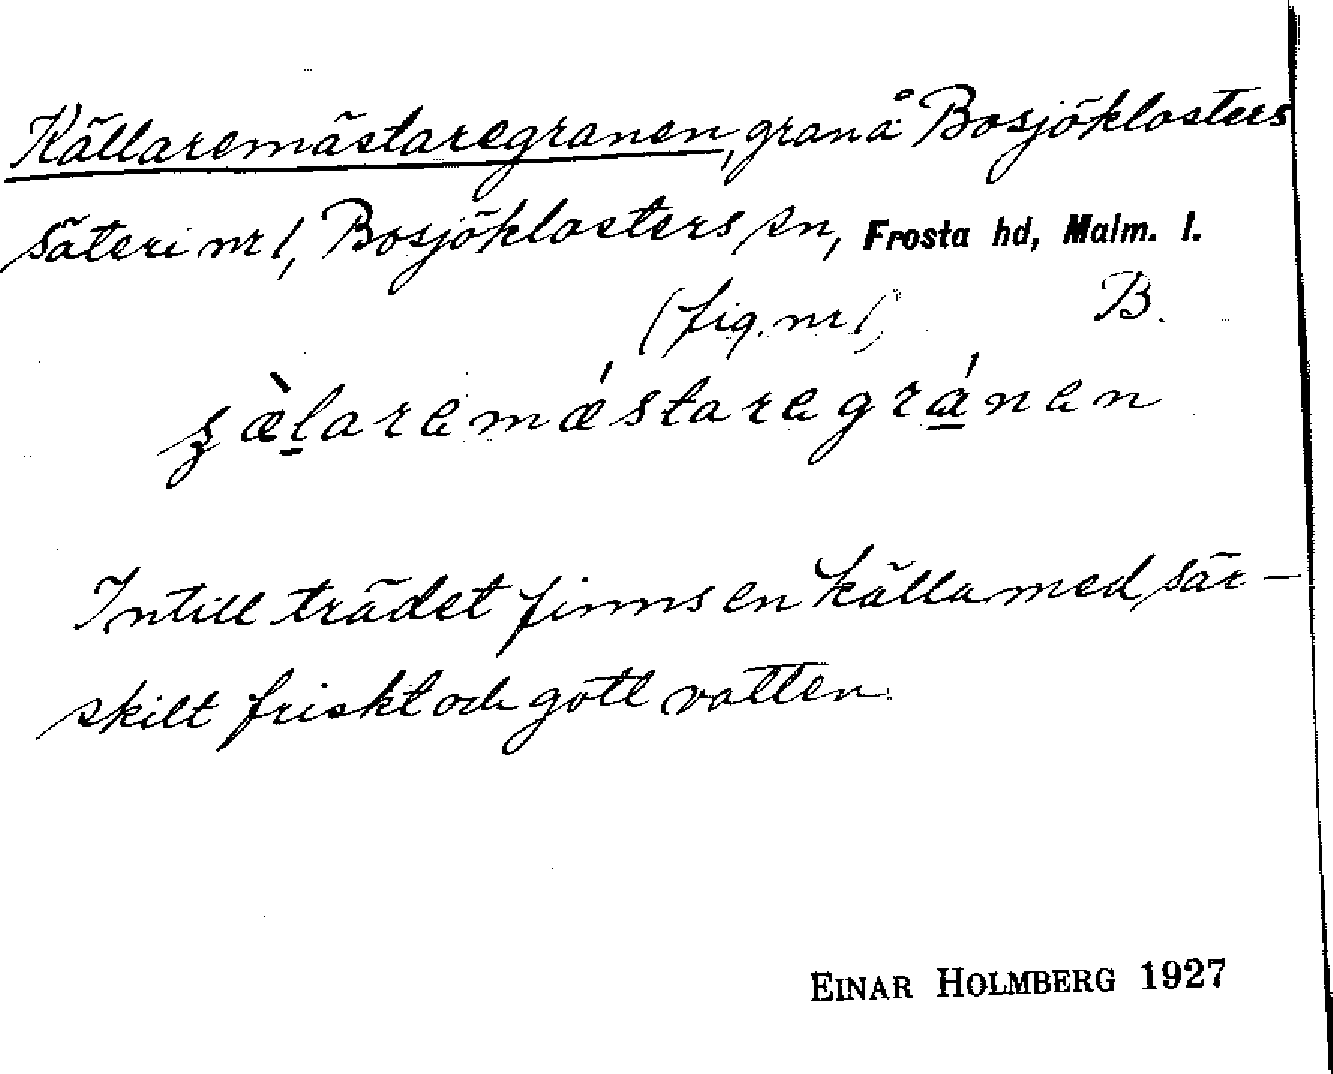 Källaremästaregranen, gran å Bosjöklosters
säteri nr 1, Bosjöklosters sn, Frosta hd, Malm. l.
(fig. nr 1) B.
Intill trädet finns en källa med sär-
skilt friskt och gott vatten.
EINAR HOLMBERG 1927